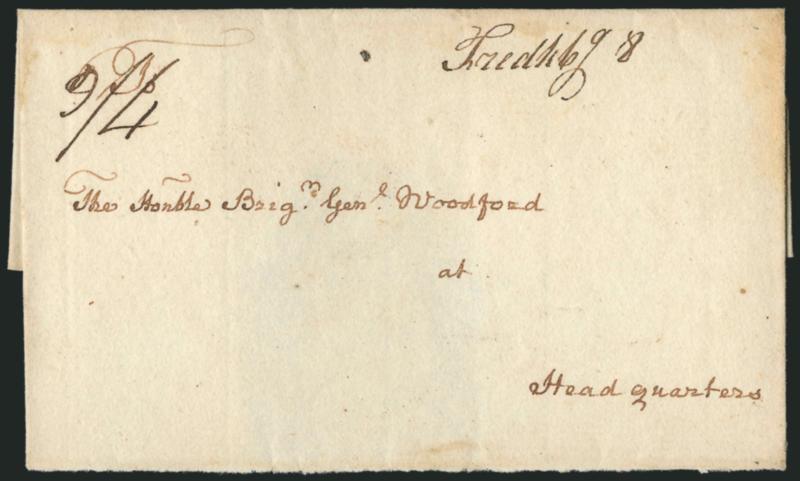 Fredkbg 8
9/4
The Honble Brigr. Genl. Woodford
at
Head quarters